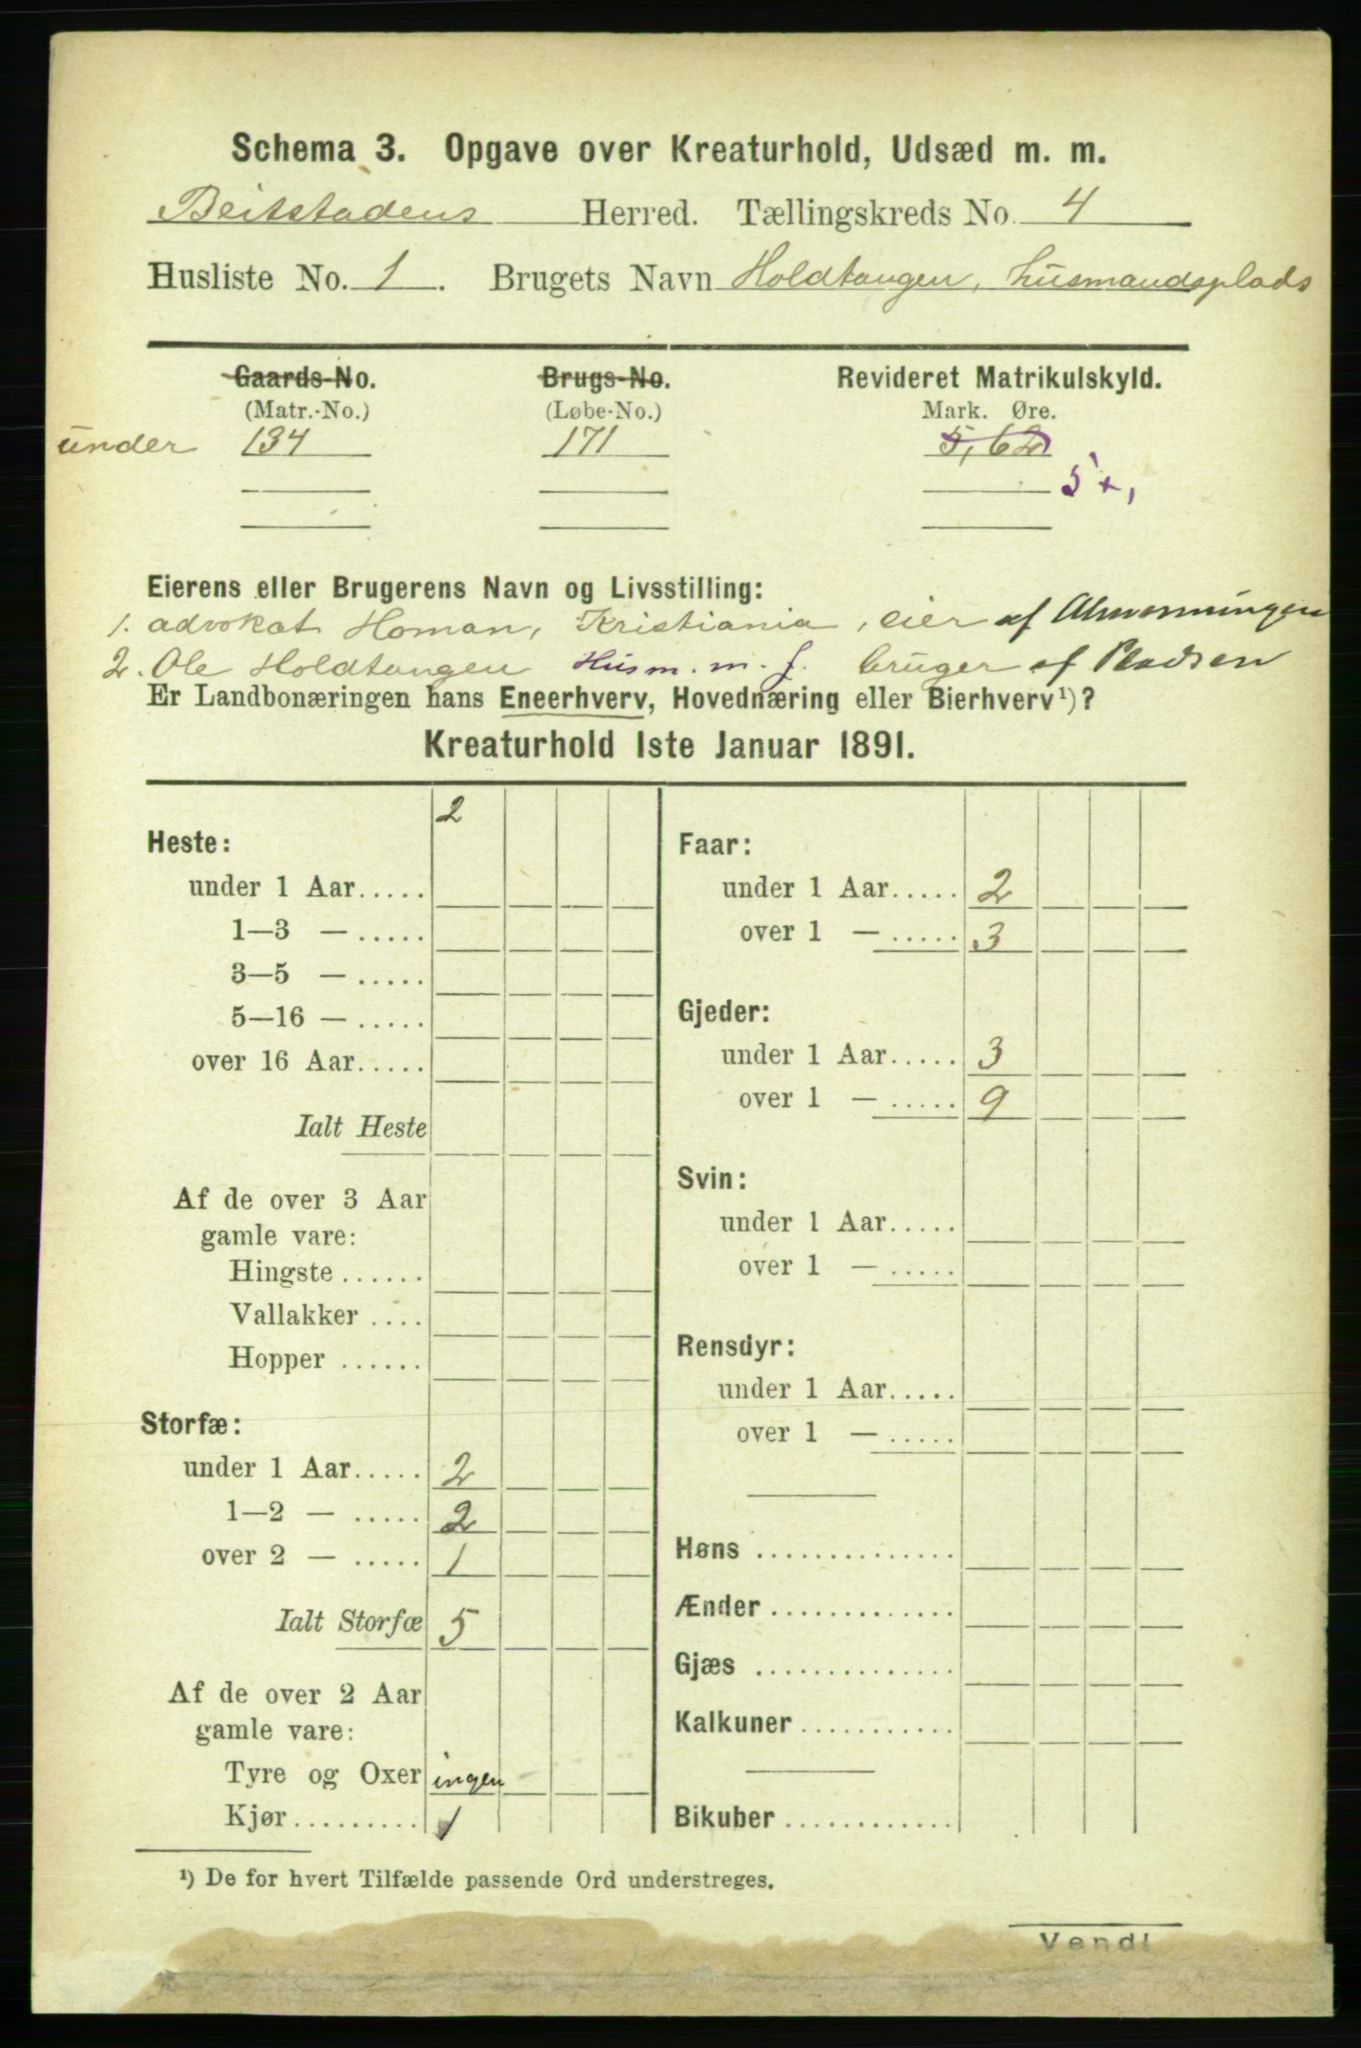 Schema 3. Opgave over Kreaturhold, Udsæd m. m.
Beitstadens Herred. Tællingskreds No. 4
Husliste No. 1. Brugets Navn Holdtangen, husmandsplads
Gaards-No. Brugs-No. Revideret Matrikulskyld.
(Matr.-No.) (Løbe-No.) Mark. Øre.
under 134 171 5,62
5
Eierens eller Brugerens Navn og Livsstilling:
1. advokat Homan, Kristiania, eier af Almenningen
2. Ole Holdtangen Husm. m. j. bruger af Pladsen
Er Landbonæringen hans Eneerhverv, Hovednæring eller Bierhverv¹)?
Kreaturhold 1ste Januar 1891.
2
Heste:
under 1 Aar.....
1—3 — .....
3—5 — .....
5—16 — .....
over 16 Aar.....
Ialt Heste
Af de over 3 Aar
gamle vare:
Hingste ......
Vallakker ....
Hopper ......
Storfæ:
under 1 Aar..... 2
1—2 — ..... 2
over 2 — ..... 1
Ialt Storfæ 5
Af de over 2 Aar
gamle vare:
Tyre og Oxer ingen
Kjør......... 1
Faar:
under 1 Aar..... 2
over 1 — ..... 3
Gjeder:
under 1 Aar..... 3
over 1 — ..... 9
Svin:
under 1 Aar.....
over 1 — .....
Rensdyr:
under 1 Aar.....
over 1 — .....
Høns ..............
Ænder .............
Gjæs ..............
Kalkuner ...........
Bikuber ............
¹) De for hvert Tilfælde passende Ord understreges.
Vend!